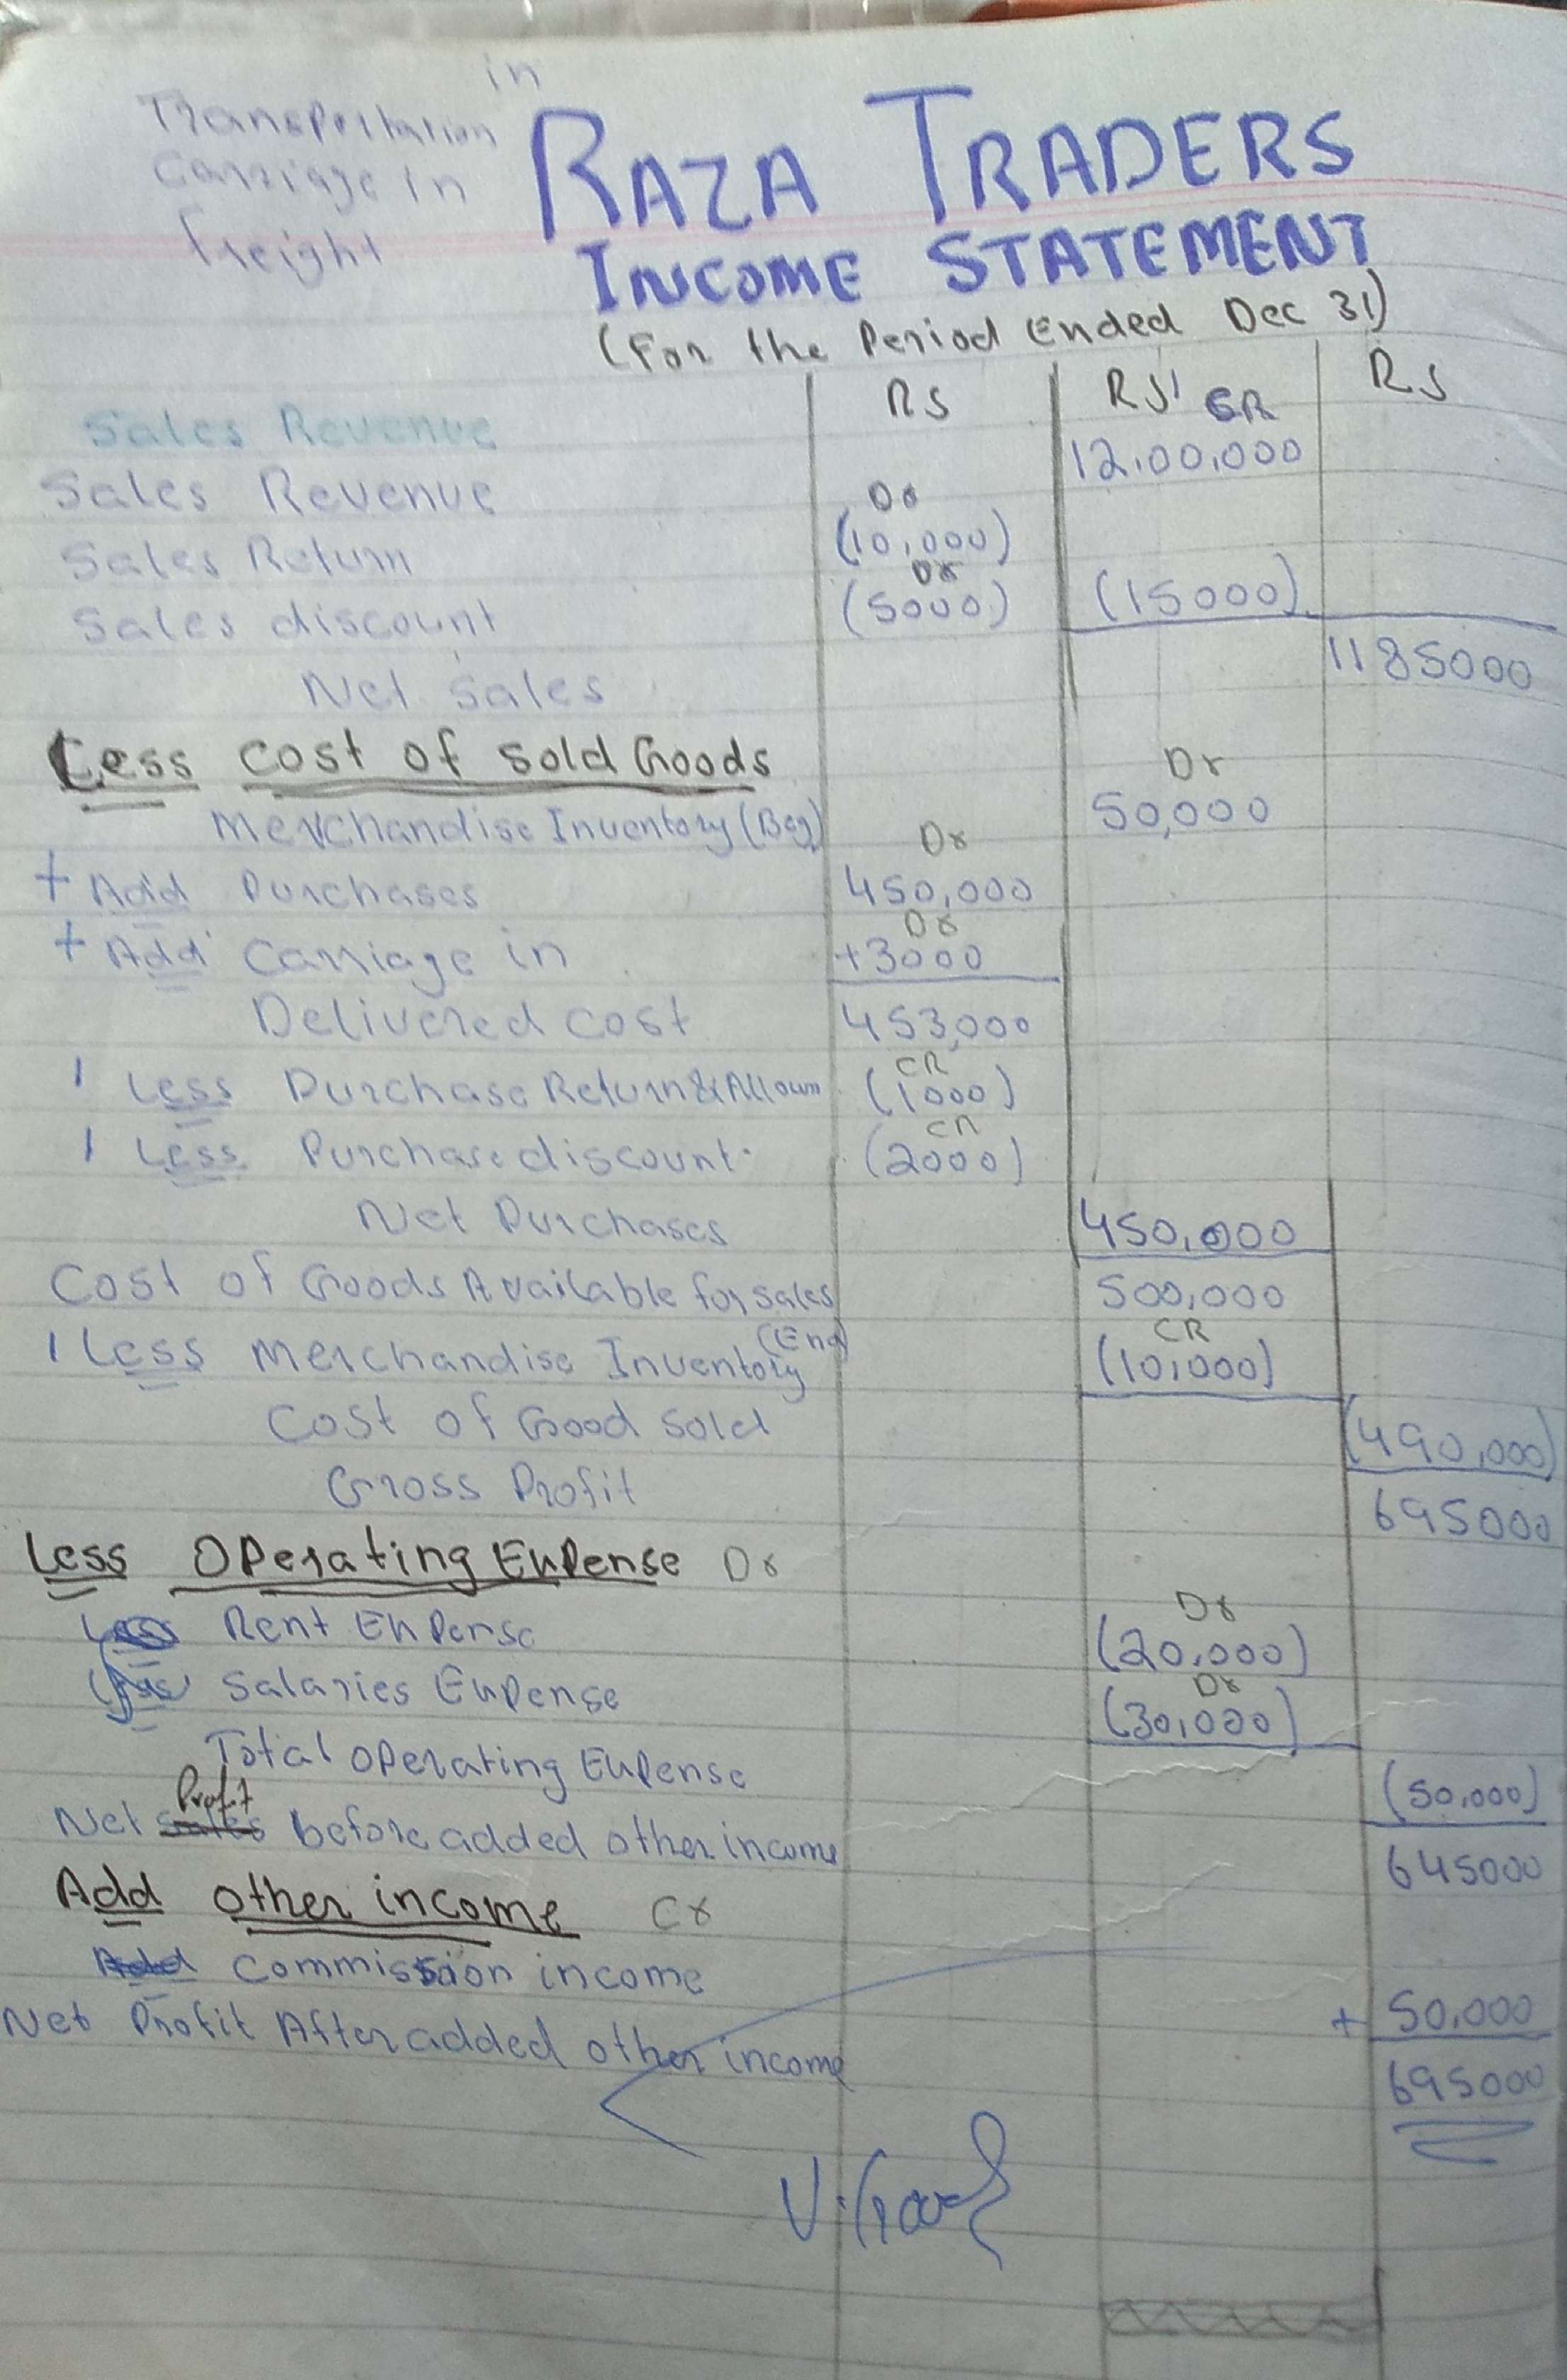 in
Transportation
Carriage in
freight
RAZA TRADERS
INCOME STATEMENT
(For the Period Ended Dec 31)
RS RS' RS
Sales Revenue CR
Sales Revenue 12,00,000
Dr
Sales Return (10,000)
Dr
Sales discount (5000) (15000)
Net Sales 1185000
Less Cost of Sold Goods
Dr
Merchandise Inventory (Beg) 50,000
Dr
+ Add Purchases 450,000
Dr
+ Add Carriage in +3000
Delivered cost 453,000
CR
Less Purchase Return & Allown (1000)
CR
Less Purchase discount. (2000)
Net Purchases 450,000
Cost of Goods Available for sales 500,000
CR
Less Merchandise Inventory (End) (10,000)
Cost of Good Sold (490,000)
Gross Profit 695000
Less Operating Expense Dr
Dr
Rent Expense (20,000)
Dr
Salaries Expense (30,000)
Total Operating Expense (50,000)
Profit
Net sales before added other income 645000
Add other income Cr
Add Commission income + 50,000
Net Profit After added other income 695000
V.Good